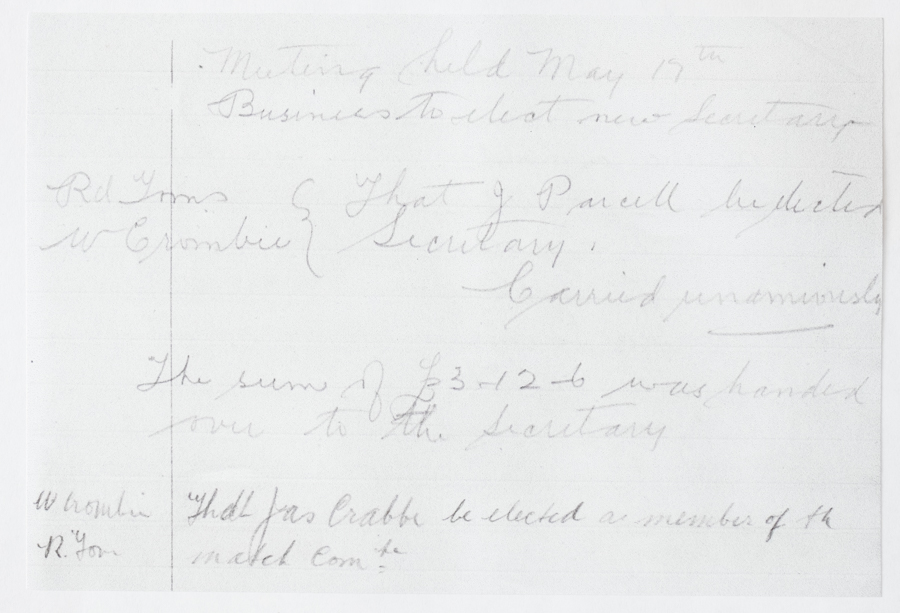 Meeting held May 19th
Business to elect new Secretary
Rd Toms { That J Parcell be elected
W Crombie } Secretary.
Carried unamiously
The sum of £3-12-6 was handed
over to the Secretary
W Crombie That Jas Crabbe be elected a member of th
R. Tom match Comte